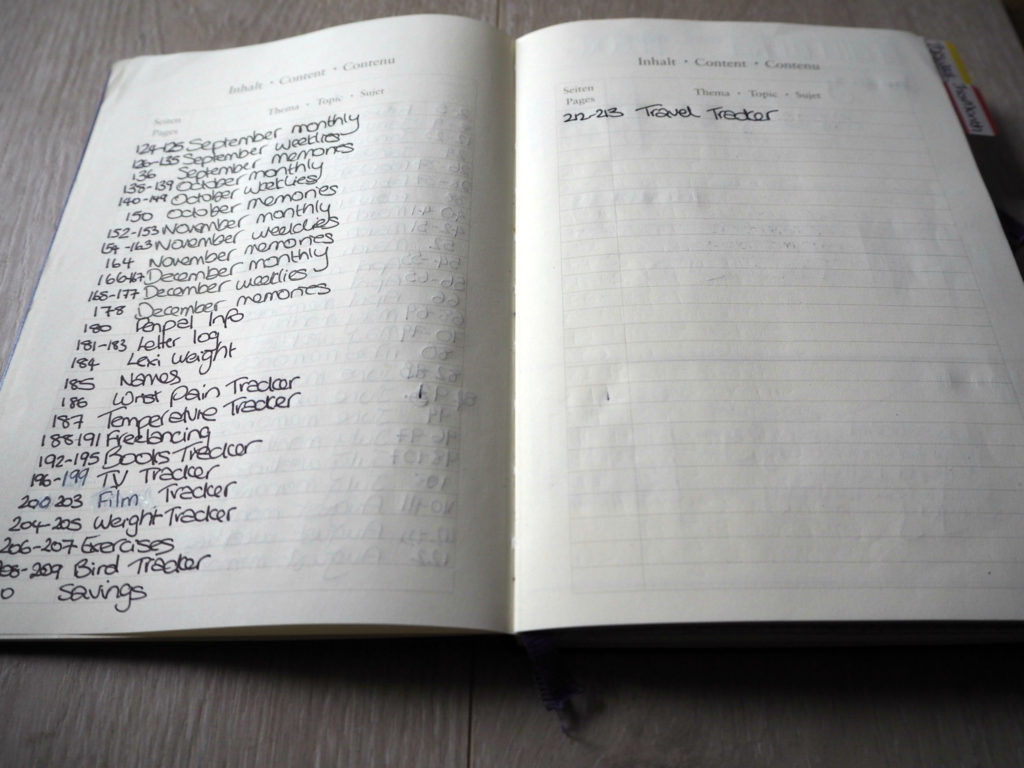 Inhalt • Content • Contenu
Seiten
Pages
Thema • Topic • Sujet
124-125 September monthly
126-135 September weeklies
136 September memories
138-139 October monthly
140-149 October weeklies
150 October memories
152-153 November monthly
154-163 November weeklies
164 November memories
166-167 December monthly
168-177 December weeklies
178 December memories
180 Penpal Info
181-183 Letter log
184 Lexi weight
185 Names
186 Wrist Pain Tracker
187 Temperature Tracker
188 191 Freelancing
192-195 Books Tracker
196-199 TV Tracker
200 203 Film Tracker
204-205 Weight Tracker
206-207 Exercises
08-209 Bird Tracker
0 Savings
Inhalt • Content • Contenu
Seiten
Pages
Thema • Topic • Sujet
212-213 Travel Tracker